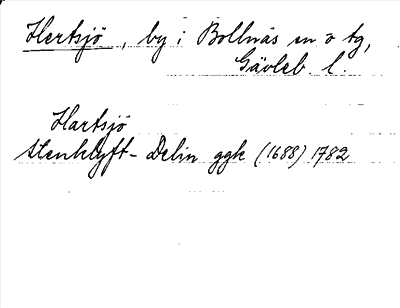 Hertsjö, by i Bollnäs sn o tg,
Gävleb l.
Hartsjö
Stenklyft- Delin ggk (1688) 1782